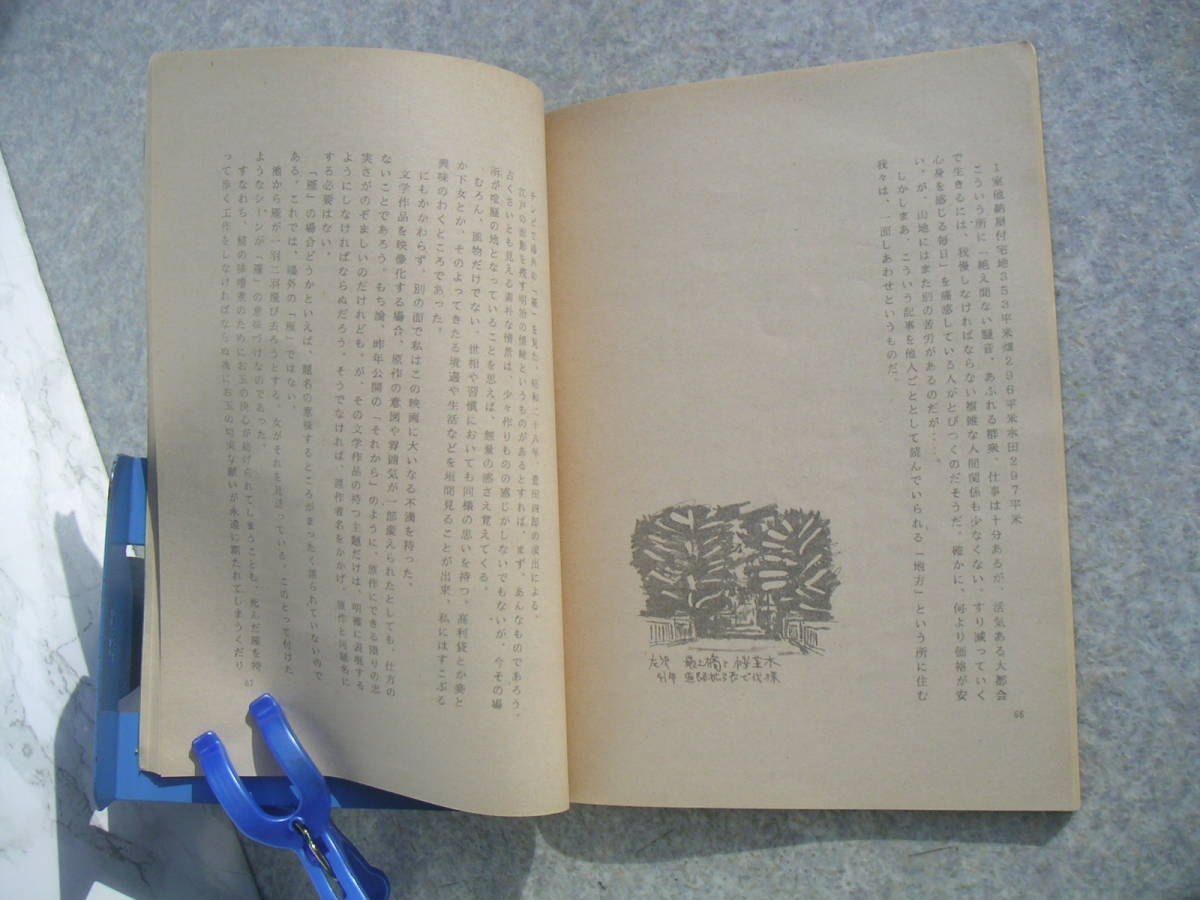 1室他納屋付宅地353平米畑296平米水田297平米
こういう所に「絶え間ない騒音、あふれる群衆、仕事は十分あるが、活気ある大都会
で生きるには、我慢しなければならない複雑な人間関係も少なくない。すり減っていく
心身を感じる毎日」を痛感している人がとびつくのだそうだ。確かに、何より価格が安
い。が、山地にはまた別の苦労があるのだが……。
しかしまあ、こういう記事を他人ごととして読んでいられる「地方」という所に住む
我々は、一面しあわせというものだ。
桜並木
66
テレビで鷗外の「雁」を見た。昭和二十八年、豊田四郎の演出による。
江戸の面影を残す明治の情緒というものがあるとすれば、まず、あんなものであろう。
古くさいとも見える素朴な情景は、少々作りものの感じがしないでもないが、今その場
所が喧騒の地となっていることを思えば、無常の感さえ覚えてくる。
むろん、風物だけでない。世相や習慣においても同様の思いを持つ。高利貸とか妾と
か下女とか、そのよってきたる境遇や生活などを垣間見ることが出来、私にはすこぶる
興味のわくところであった。
にもかかわらず、別の面で私はこの映画に大いなる不満を持った。
文学作品を映像化する場合、原作の意図や雰囲気が一部変えられたとしても、仕方の
ないことであろう。もち論、昨年公開の「それから」のように、原作にできる限りの忠
実さがのぞましいのだけれども、が、その文学作品の持つ主題だけは、明確に表現する
ようにしなければならぬだろう。そうでなければ、原作者名をかかげ、原作と同題名に
する必要はない。
「雁」の場合どうかといえば、題名の意味するところがまったく語られていないので
ある。これでは、鷗外の「雁」ではない。
池から雁が一羽二羽飛び去ろうとする。女がそれを見送っている。このとって付けた
ようなシーンが「雁」の意味づけなのであった。
すなわち、鯖の味噌煮のためにお玉の決心が妨げられてしまうことも、死んだ雁を持
って歩く工作をしなければならぬ為にお玉の切実な願いが永遠に断たれてしまうくだり
67